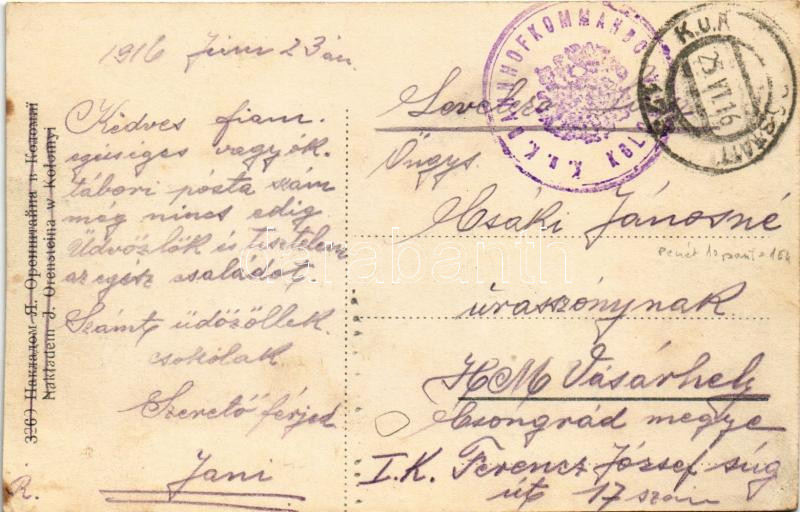 1916 Jun 23 án
Kedves fiam.
egisiges vagyok.
tábori pósta szám
még nincs edig
Üdvözlök és tisztelem
az egész családot
Számt üdözöllek.
csokolak.
Szerető férjed
Jani
R.
3260 Накладом Я. Оренштайна в Коломиї
Nakładem J. Orensteina w Kołomyi
K. u. K. BAHNHOFKOMMANDO
K.u.K.
25 VI 16
Öngys.
Csáki Jánosné
úraszónynak
HM Vásárhely
Csongrád megye
I.K. Ferencz József súg
út 17 szám
darabanth